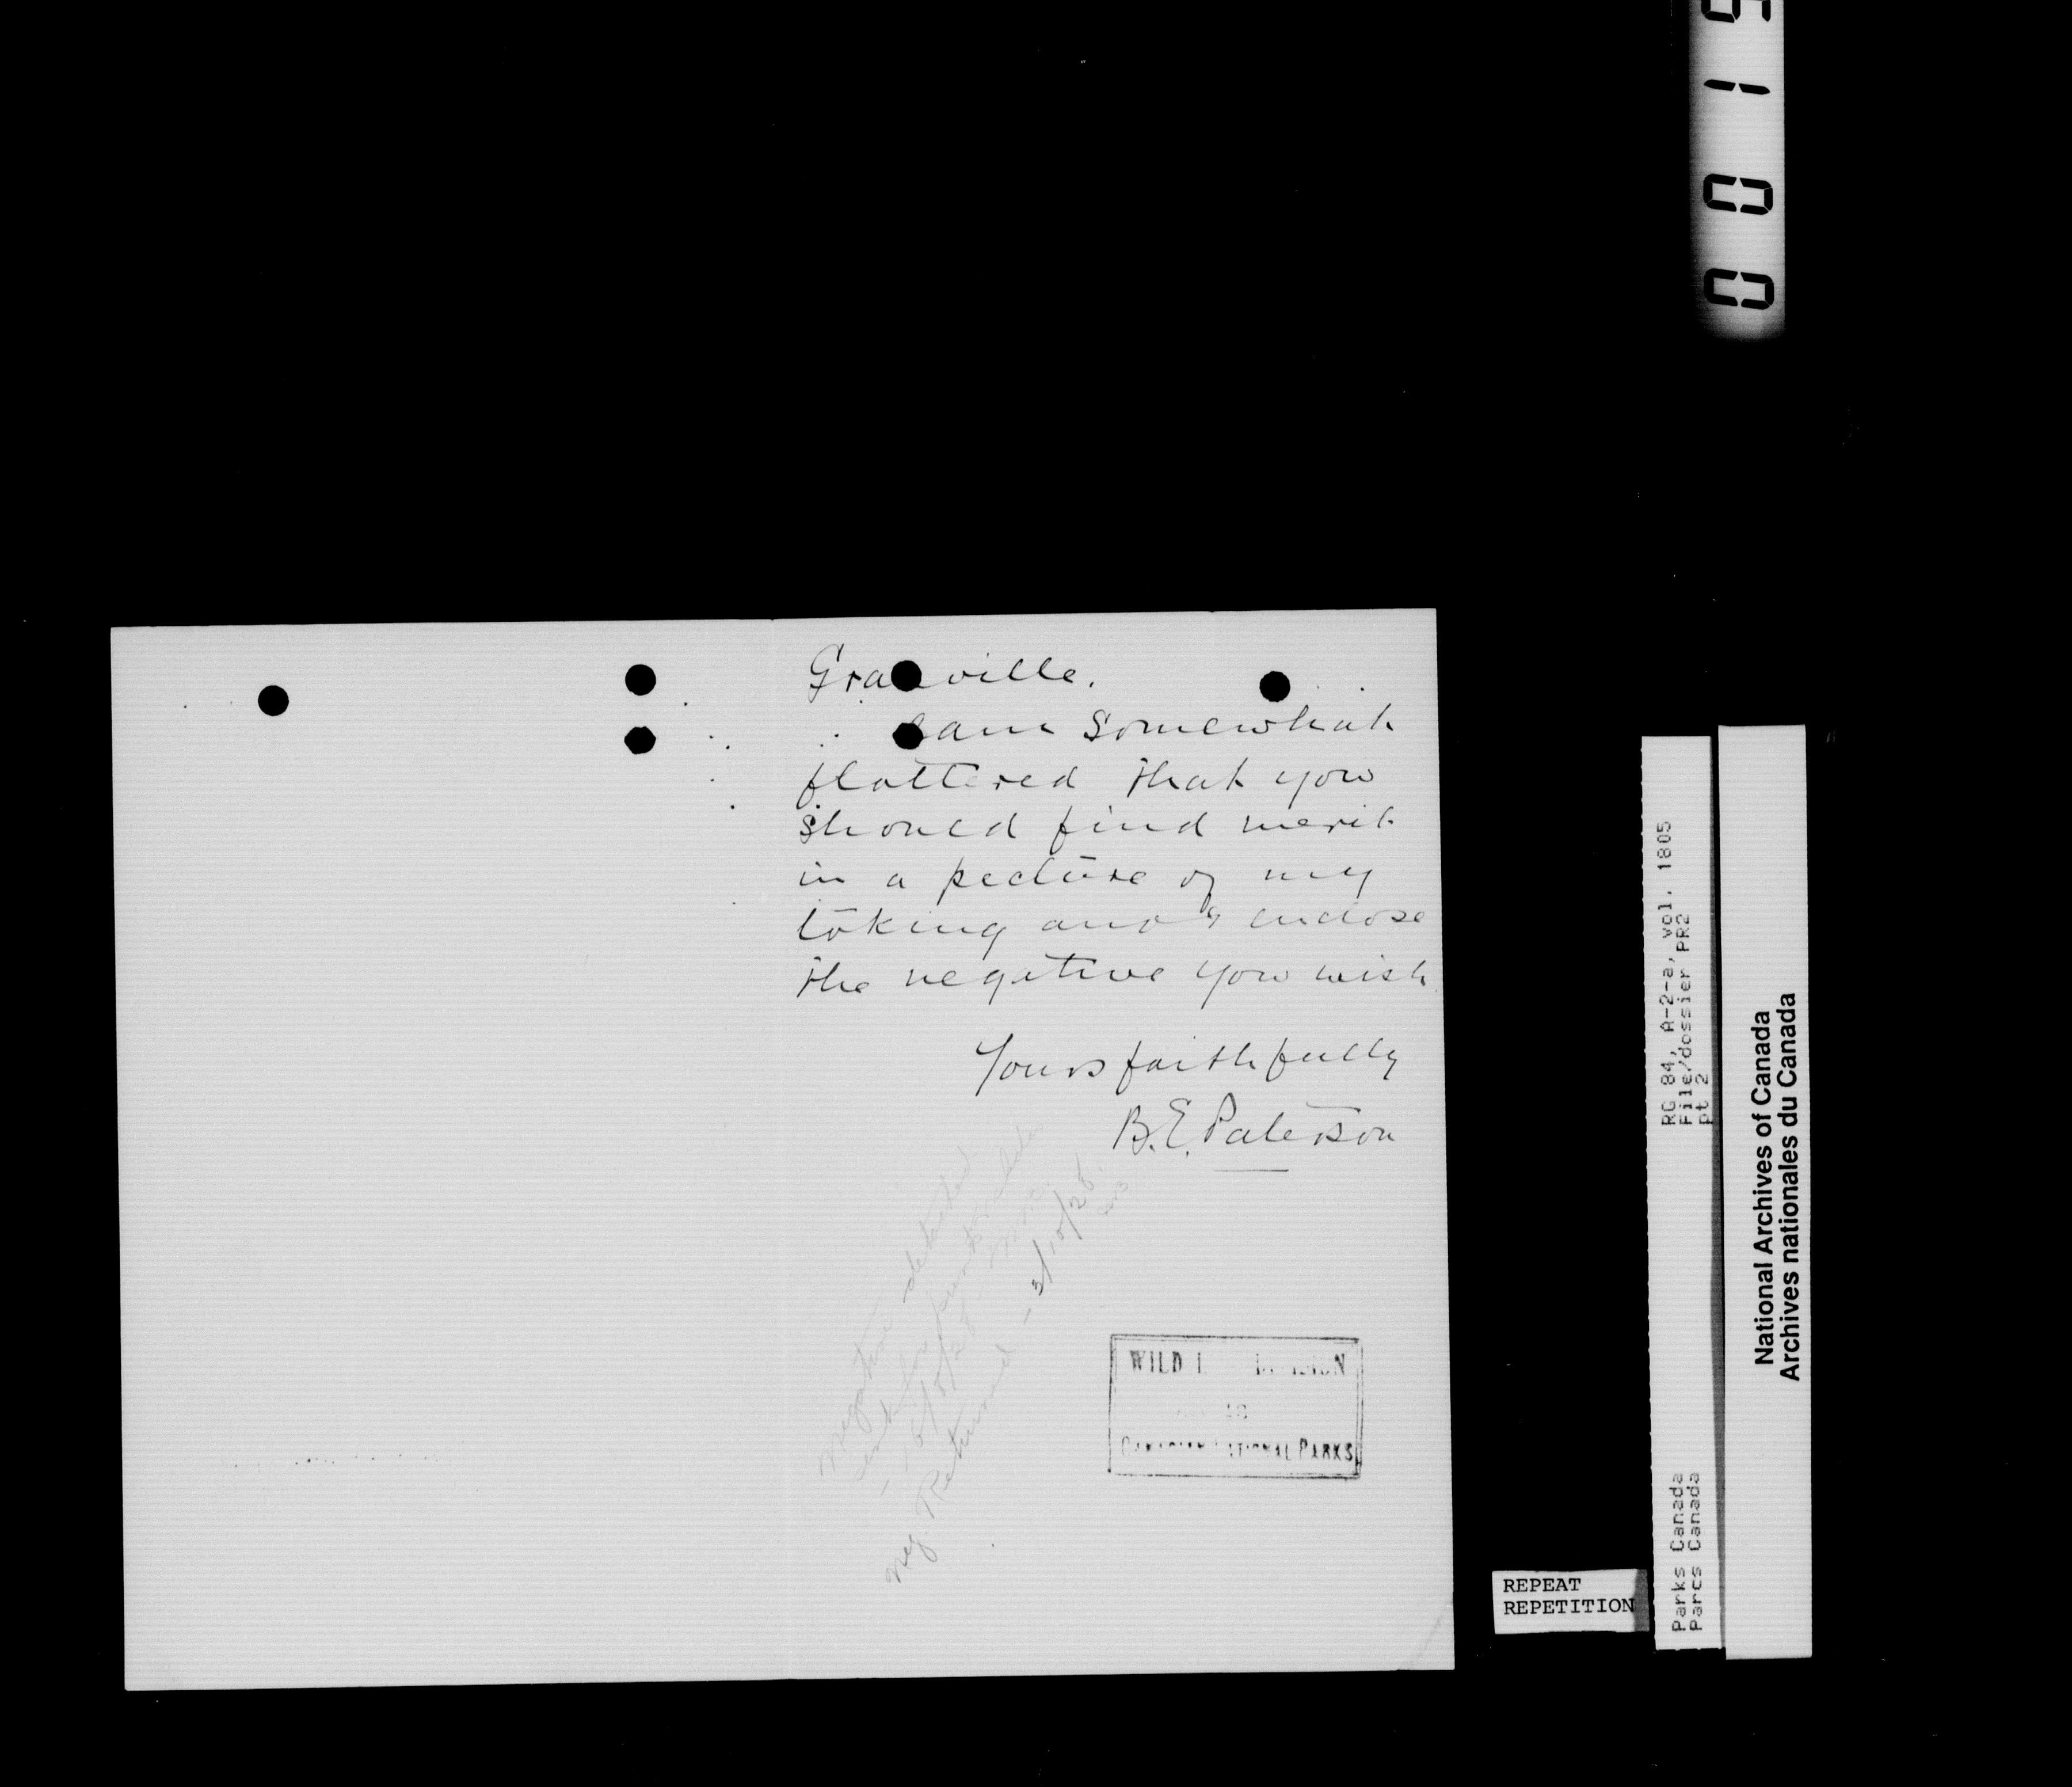 Granville.
I am somewhat
flattered that you
should find merit
in a picture of my
taking and I enclose
the negative you wish.
Yours faithfully
B.E. Paterson
Negative detached
sent for prints & slides
Neg. Returned - 3/10/28.
WILD L DIVISION
CANADIAN NATIONAL PARKS
REPEAT
REPETITION
Parks Canada
Parcs Canada
RG 84, A-2-a, vol. 1805
File/dossier PR2
pt 2
National Archives of Canada
Archives nationales du Canada
0015